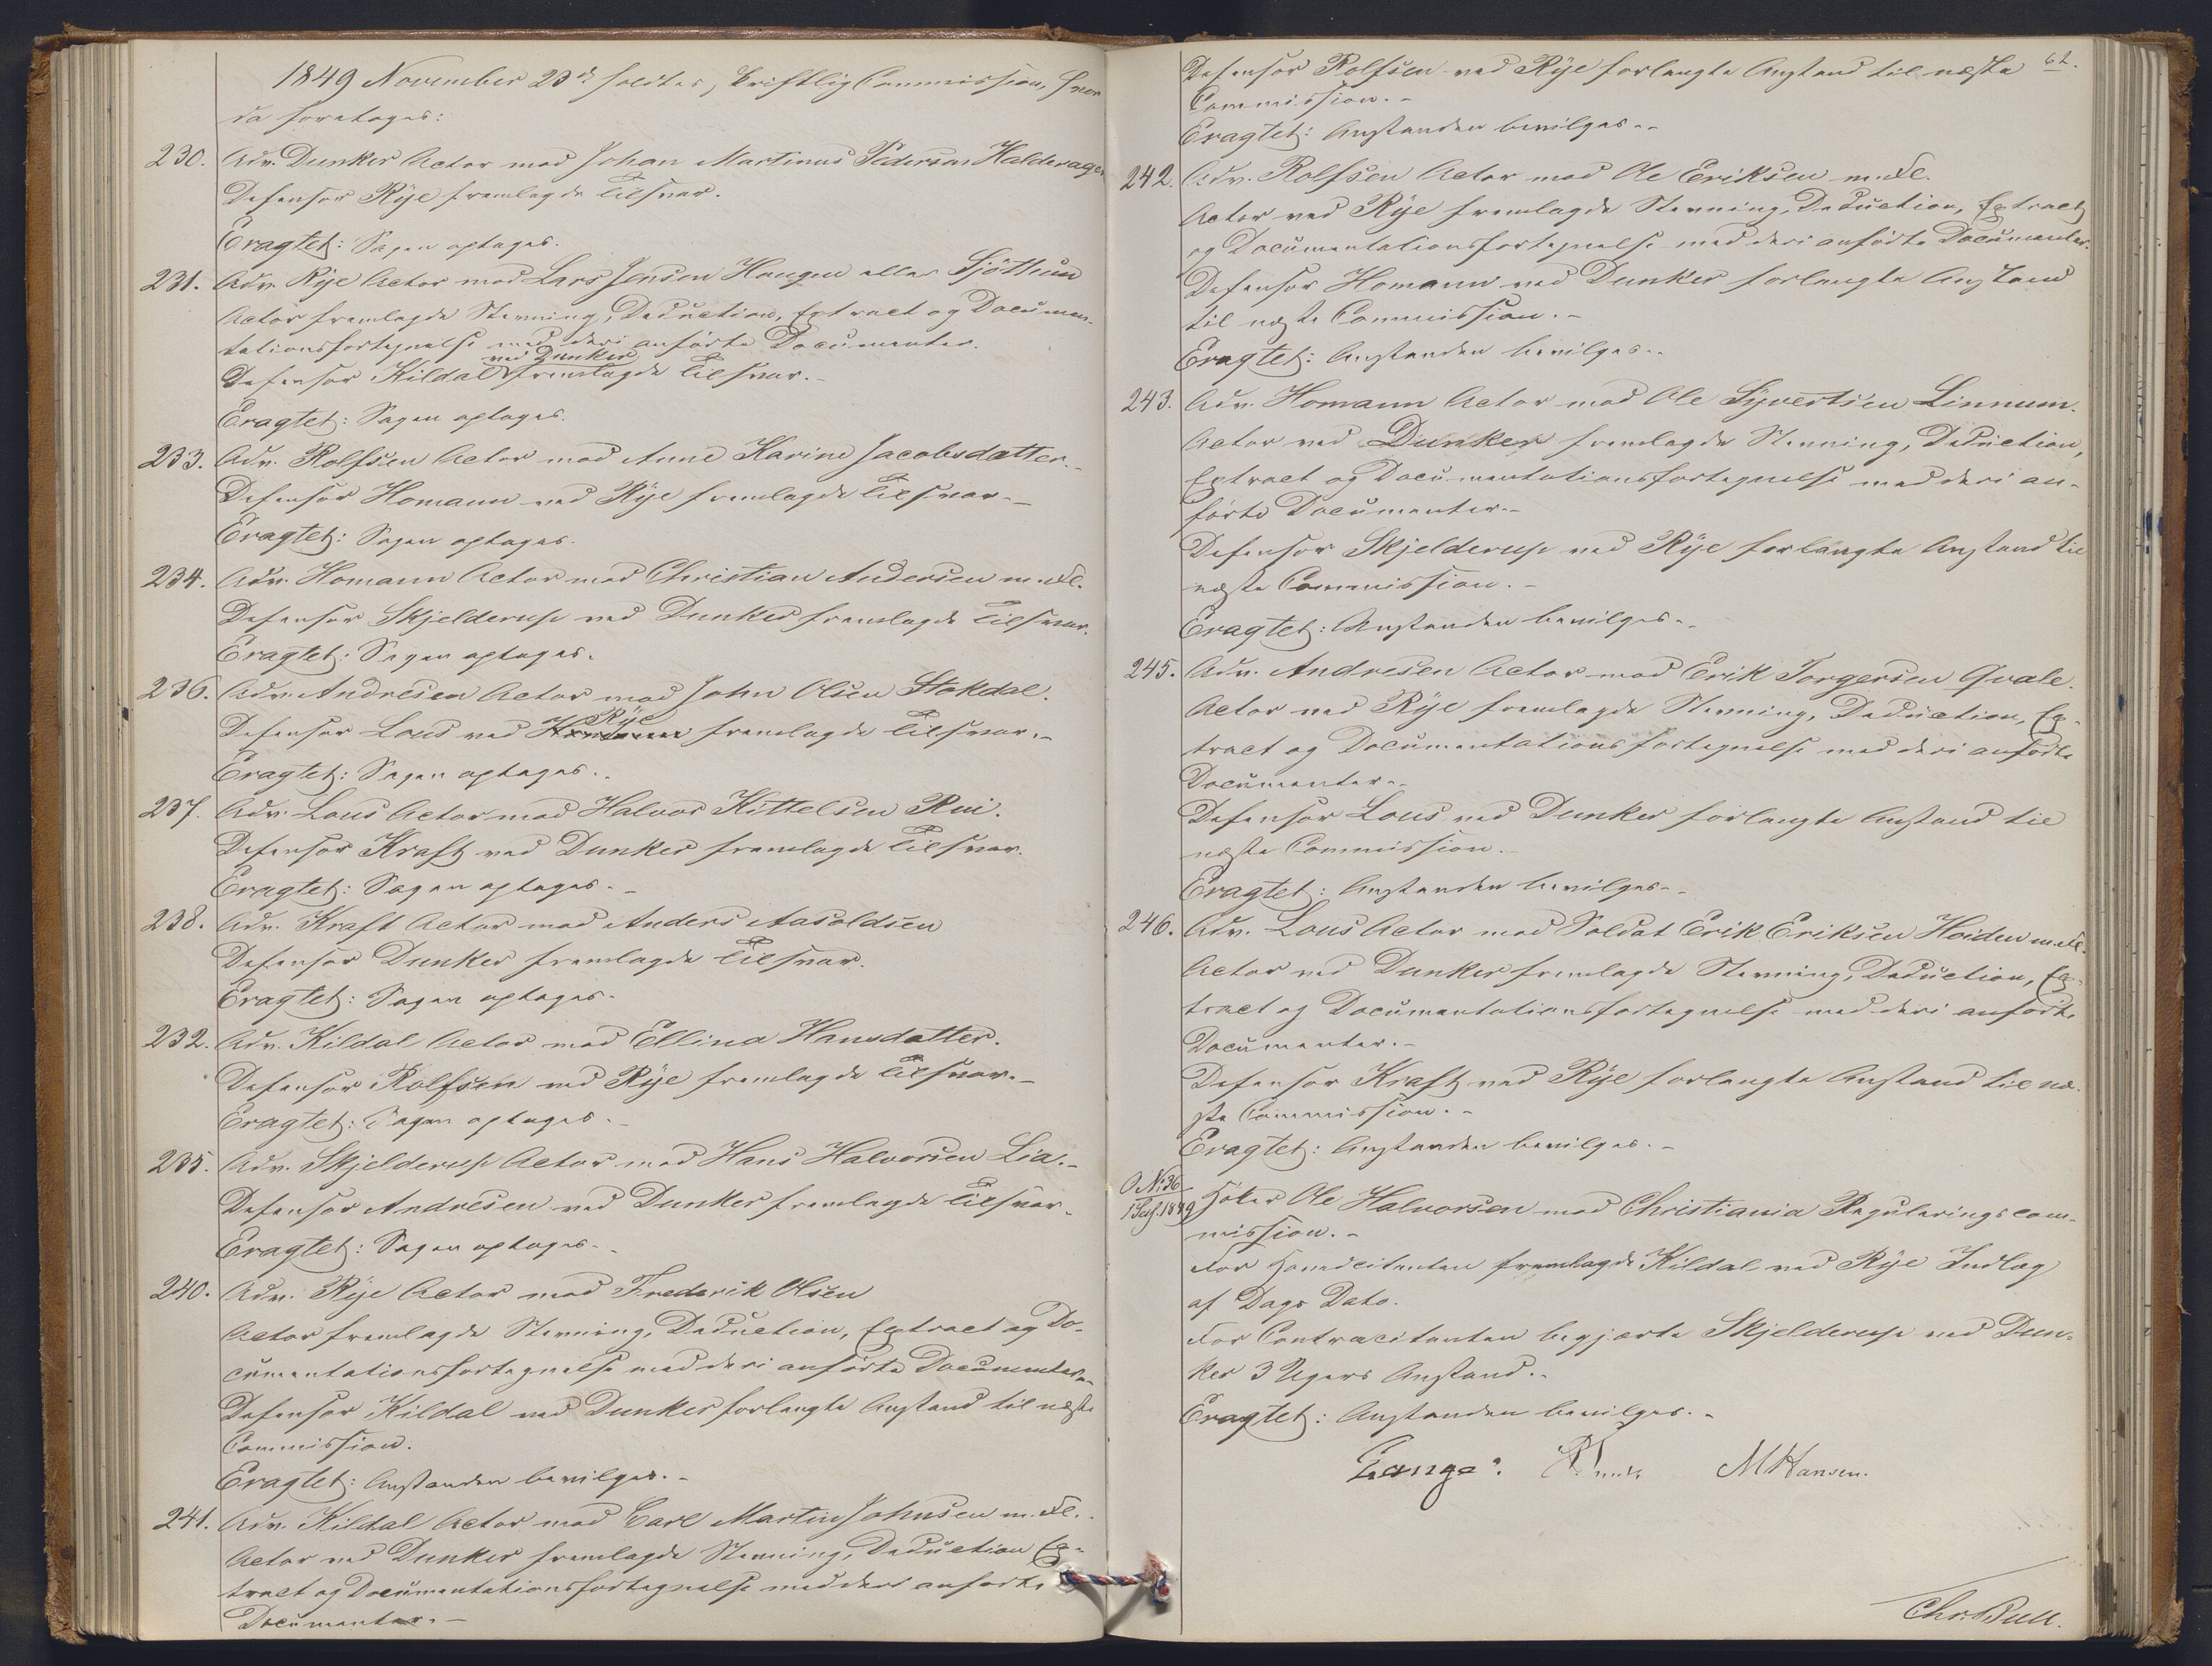 1849 November 23de holdtes skriftlig Commission, hvor
da foretoges:
230. Adv. Dunker Actor mod Johan Martinus Pedersen Halderager
Defensor Rÿe fremlagde Tilsvar.
Eragtet: Sagen optages.
231. Adv. Rÿe Actor mod Lars Jensen Haugen eller Sjöttum
Actor fremlagde Stevning, Deduction, Extract og Documen-
tationsfortegnelse med deri anförte Documenter.
ved Dunker
Defensor Kildal fremlagde Tilsvar.-
Eragtet: Sagen optages.
233. Adv. Rolfsen Actor mod Anne Karine Jacobsdatter.-
Defensor Homann ved Rÿe fremlagde Tilsvar.-
Eragtet: Sagen optages.
234. Adv. Homann Actor mod Christian Andersen m. Fl.
Defensor Skjelderup ved Dunker fremlagde Tilsvar.
Eragtet: Sagen optages.
236. Adv. Andresen Actor mod John Olsen Stokdal.
Rÿe
Defensor Lous ved fremlagde Tilsvar.-
Eragtet: Sagen optages..
237. Adv. Lous Actor mod Halvor Kittelsen Rui.
Defensor Kraft ved Dunker fremlagde Tilsvar.
Eragtet: Sagen optages.-
238. Adv. Kraft Actor mod Anders Aasoldsen
Defensor Dunker fremlagde Tilsvar.
Eragtet: Sagen optages.
232. Adv. Kildal Actor mod Ellina Hansdatter.
Defensor Rolfsen ved Rÿe fremlagde Tilsvar.-
Eragtet: Sagen optages.-
235. Adv. Skjelderup Actor mod Hans Halvorsen Lia.-
Defensor Andresen ved Dunker fremlagde Tilsvar.
Eragtet: Sagen optages.-
240. Adv. Rÿe Actor mod Frederik Olsen
Actor fremlagde Stevning, Deduction, Extract og Do-
cumentationsfortegnelse med deri anförte Documenter.-
Defensor Kildal ved Dunker forlangte Anstand til næste
Commission.
Eragtet: Anstanden bevilges.-
241. Adv. Kildal Actor mod Carl Martin Johnsen m. Fl.
Actor ved Dunker fremlagde Stevning, Deduction Ex-
tract og Documentationsfortegnelse med deri anförte
Documenter.-
62.
Defensor Rolfsen ved Rÿe forlangte Anstand til næste
Commission.-
Eragtet: Anstanden bevilges.-
242. Adv. Rolfsen Actor mod Ole Eriksen m. Fl.
Actor ved Rÿe fremlagde Stevning, Deduction, Extract
og Documentationsfortegnelse med deri anförte Documenter.
Defensor Homann ved Dunker forlangte Anstand
til næste Commission.-
Eragtet: Anstanden bevilges..
243. Adv. Homann Actor mod Ole Syvertsen Linnum.
Actor ved Dunker fremlagde Stevning, Deduction,
Extract og Documentationsfortegnelse med deri an-
förte Documenter.-
Defensor Skjelderup ved Rÿe forlangte Anstand til
næste Commission.-
Eragtet: Anstanden bevilges.-
245. Adv. Andresen Actor mod Erik Torgersen Qvale.
Actor ved Rÿe fremlagde Stevning, Deduction, Ex-
tract og Documentationsfortegnelse med deri anförte
Documenter.-
Defensor Lous ved Dunker forlangte Anstand til
næste Commission.-
Eragtet: Anstanden bevilges.-
246. Adv. Lous Actor mod Soldat Erik Eriksen Hoiden m. Fl.
Actor ved Dunker fremlagde Stevning, Deduction, Ex-
tract og Documentationsfortegnelse med deri anförte
Documenter.-
Defensor Kraft ved Rÿe forlangte Anstand til næ-
ste Commission.-
Eragtet: Anstanden bevilges.-
O. No 36
1 Sess. 1849 Höker Ole Halvorsen mod Christiania Reguleringscom-
mission.-
For Hovedcitanten fremlagde Kildal ved Rÿe Indlæg
af Dags Dato.
For Contracitanten begjærte Skjelderup ved Dun-
ker 3 Ugers Anstand..
Eragtet: Anstanden bevilges.-
Lange. MHansen.
Chr. Bull.